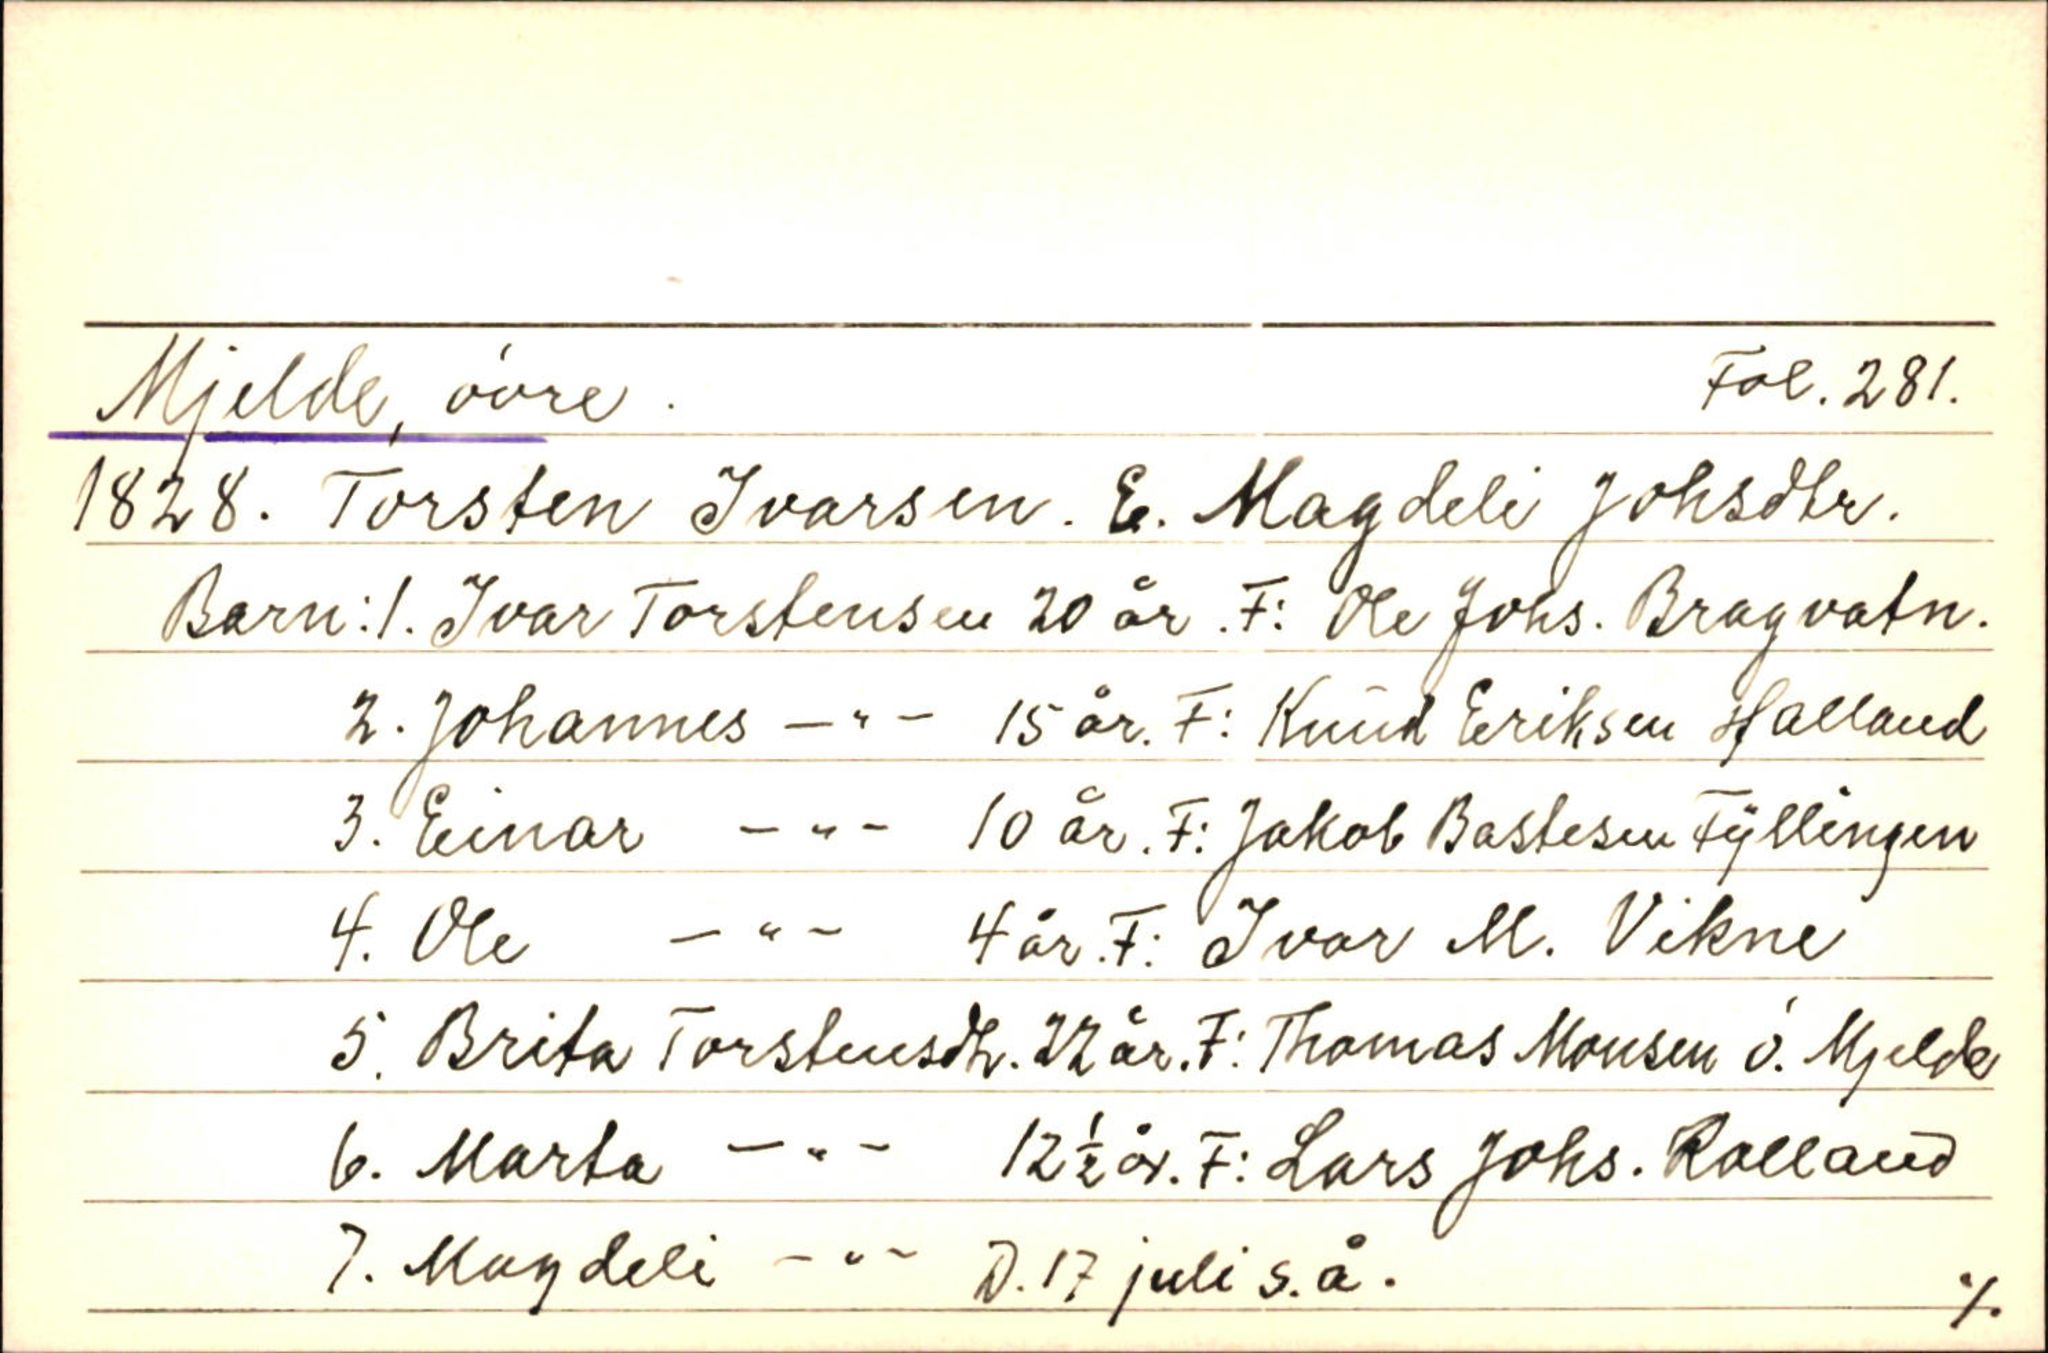 Mjelde, óvre. Fol. 281.
1828. Torsten Ivarsen. E. Magdeli Johsdtr.
Barn: 1. Ivar Torstensen 20 år. F: Ole Johs. Bragvatn.
2. Johannes —"— 15 år. F: Knud Eriksen Halland
3. Einar —"— 10 år. F: Jakob Bastesen Fyllingen
4. Ole —"— 4 år. F: Ivar M. Vikne
5. Brita Torstensdtr. 22 år. F: Thomas Monsen ó. Mjelde
6. Marta —"— 12½ år. F: Lars Johs. Rolland
7. Magdeli —"— D. 17 juli s. å. ·/.